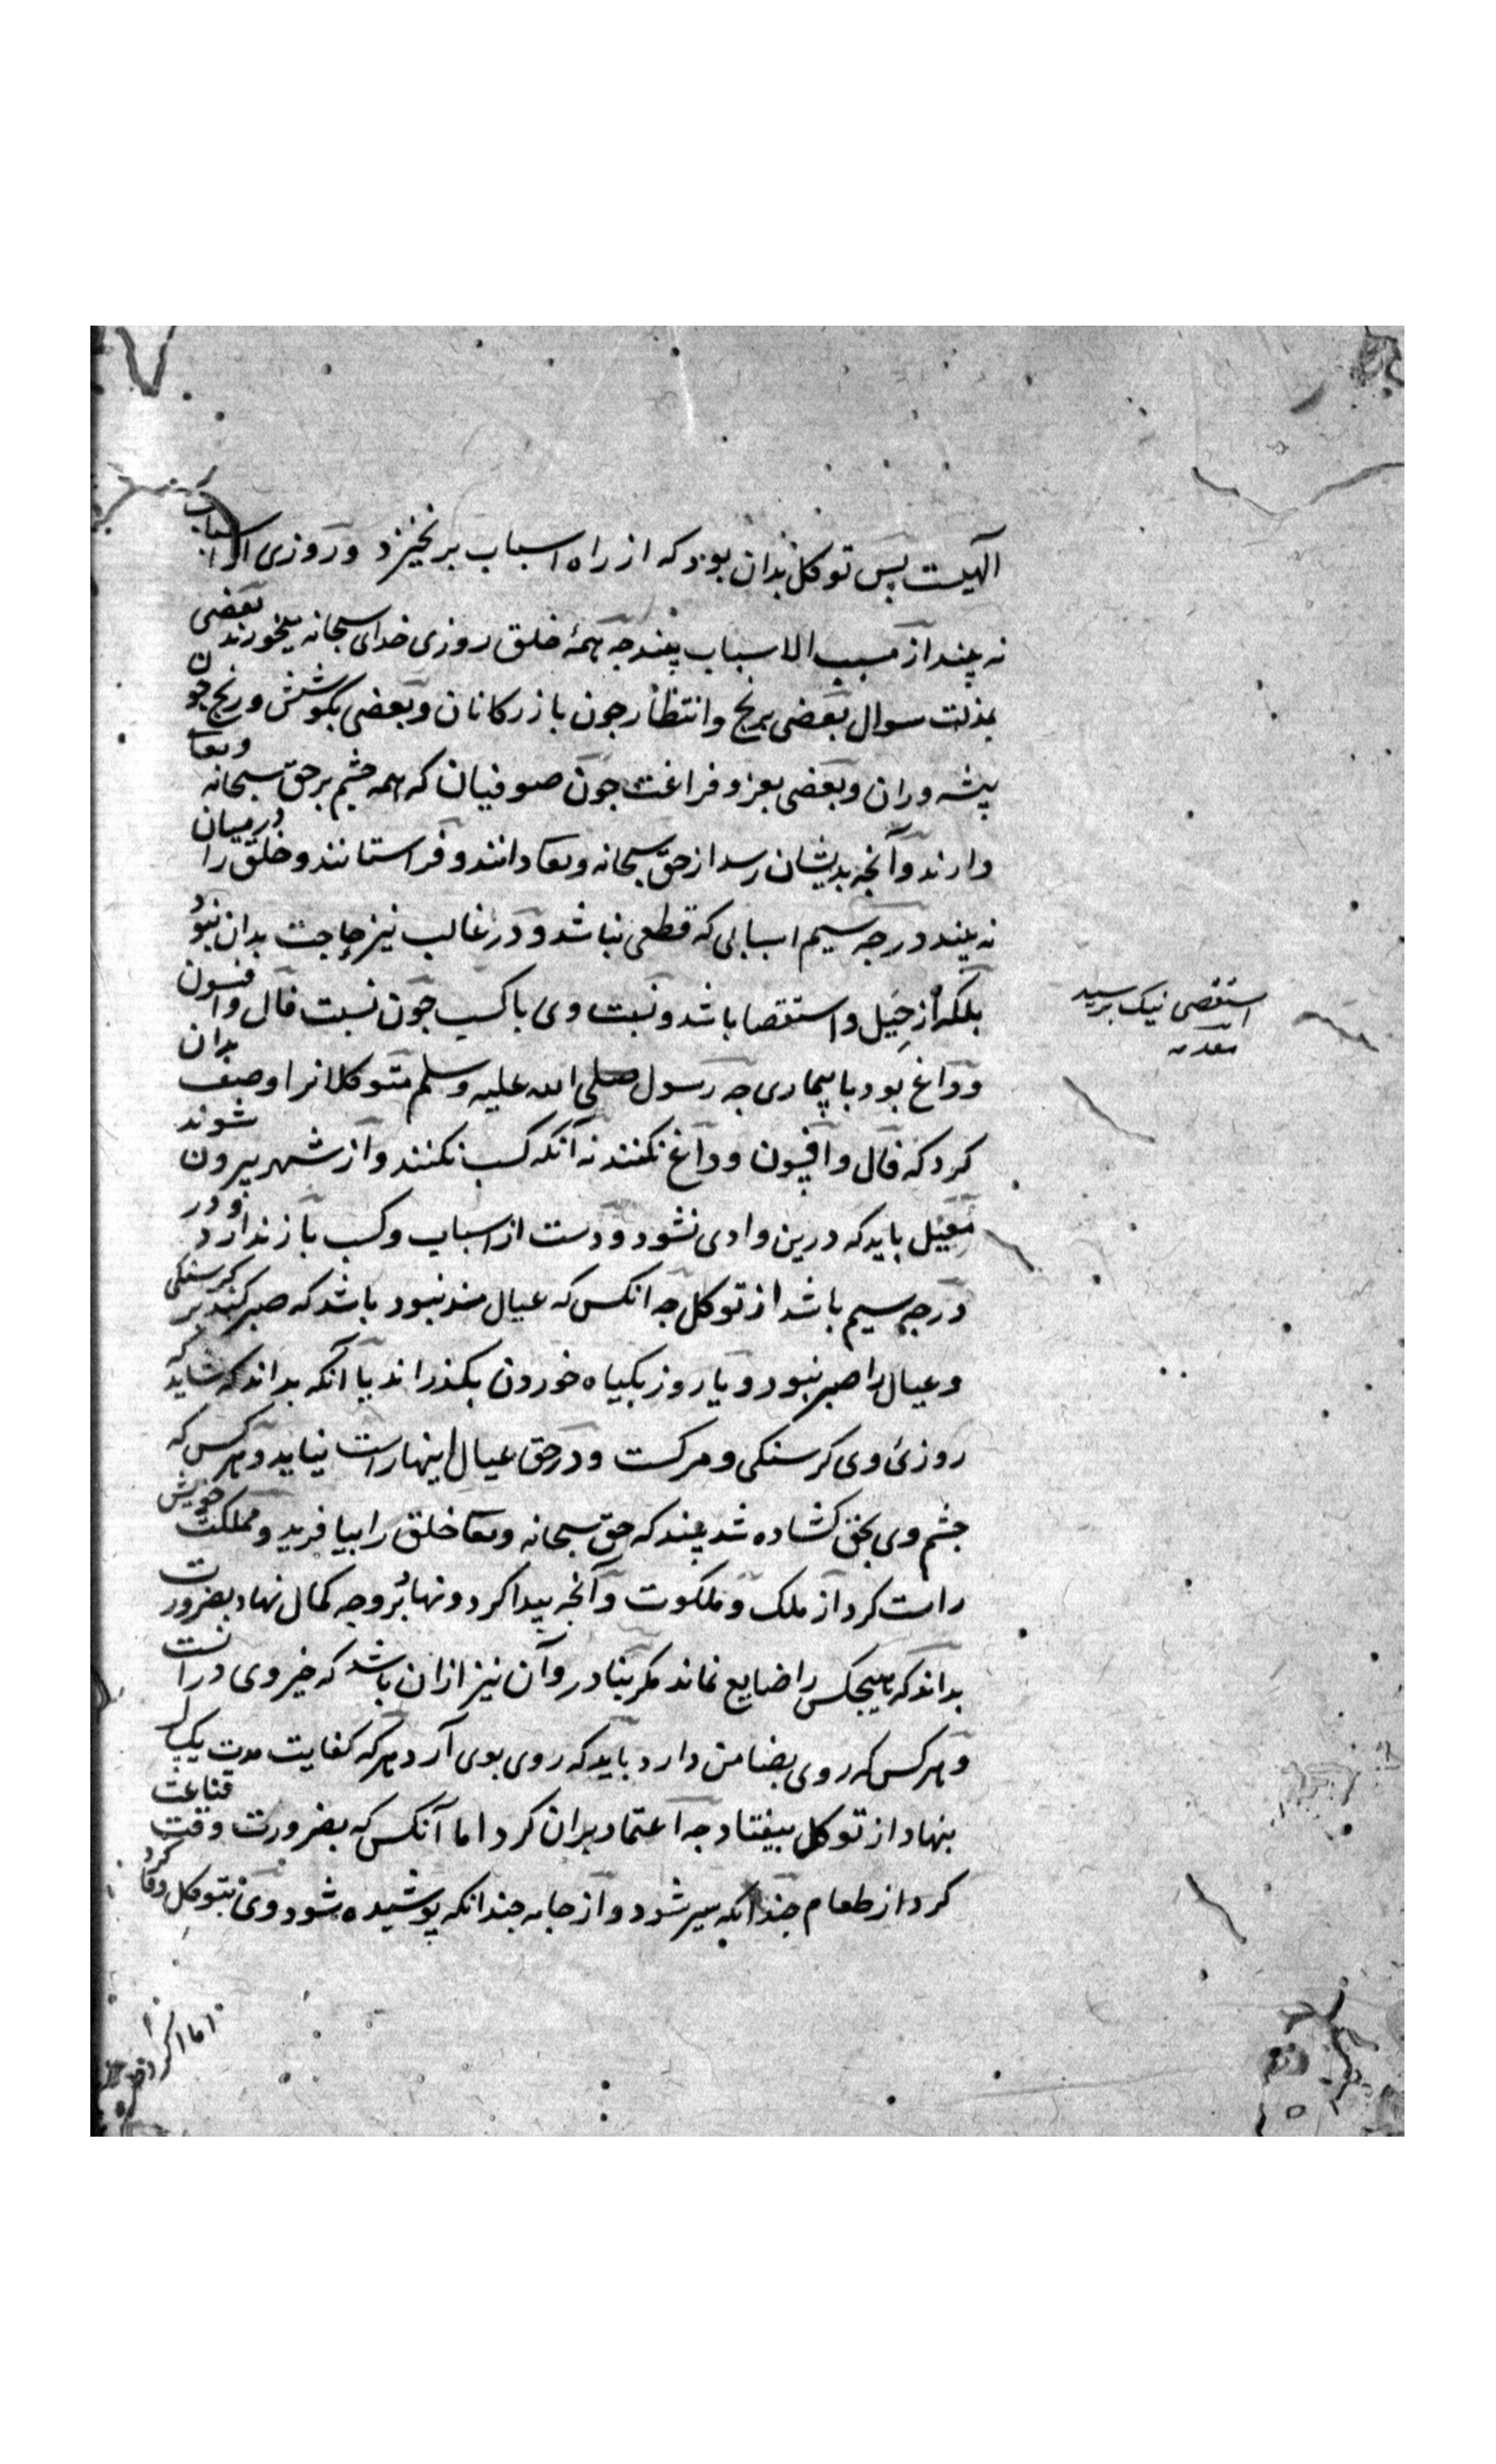 الهیست پس توکل بدان بود که از راه اسباب برنخیزد و روزی از اسباب
نه بیند از مسبب الاسباب بیند چه همهٔ خلق روزی خدای سبحانه میخورند بعضی
بمذلت سوال بعضی برنج و انتظار چون بازرکانان و بعضی بکوشش و رنج چون
پیشه وران و بعضی بعز و فراغت چون صوفیان که همه چشم بر حق سبحانه وتعا
دارند و آنچه بدیشان رسد از حق سبحانه وتعا دانند و فراستانند و خلق را درمیان
نه بیند درجه سیم اسبابی که قطعی نباشد و در غالب نیز حاجت بدان نبود
بلکه از حِیَل و استقصا باشد و نسبت وی با کسب چون نسبت فال و افسون
استقصی نیک برسید
و داغ بود با بیماری چه رسول صلی الله علیه وسلم متوکلانرا وصف بدان
کرد که فال و افسون و داغ نکنند نه آنکه کسب نکنند و از شهر بیرون شوند
مُعیِل باید که درین وادی نشود و دست از اسباب و کسب باز ندارد و در
درجه سیم باشد از توکل چه انکس که عیال مند نبود باشد که صبر کند بر کرسنکی
و عیال را صبر نبود و یا روز بکیاه خوردن بکذراند یا آنکه بداند که شاید که
روزئ وی کرسنکی و مرکست و در حق عیال اینها راست نیاید و هرکس که
چشم وی بحق کشاده شد بیند که حق سبحانه وتعا خلق را بیافرید و مملکت خویش
راست کرد از ملک و ملکوت و آنچه پیدا کرد و نهاد بُر وجه کمال نهاد بضرورت
بداند که هیچکس را ضایع نماند مکر بنادر و آن نیز ازان باشد که خیر وی درانست
و هرکس که روی بضامن دارد باید که روی بوی آرد هرکه کفایت مدت یک
بنهاد از توکل بیفتاد چه اعتماد بران کرد اما آنکس که بضرورت وقت قناعت
کرد از طعام چندانکه سیر شود و از جامه چندانکه پوشیده شود وی بتوکل وفا کرد
اما اگر